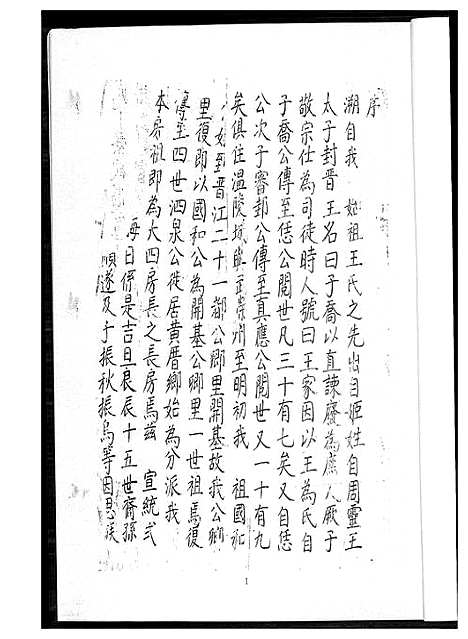 序
溯自我 始祖王氏之先出自姬姓自周靈王
太子封晋王名曰子喬以直諫廢為庶人厥子
敬宗仕為司徒時人號曰王家因以王為氏自
子喬公傳至恁公閲世凡三十有七矣又自恁
公次子審邽公傳至真應公閲世又一十有九
矣俱住温陵 州至明初我 祖國和
始至晋江二十一都公卿里開基故我公卿
里復即以國和公為開基公卿里一世祖焉復
傳至四世泗泉公徙居黄厝鄉始為分派我
本房祖即為大四房長之長房焉兹 宣統弍
每日係是吉旦良辰十五世裔孫
順遂及于振秋振烏等因思族
1